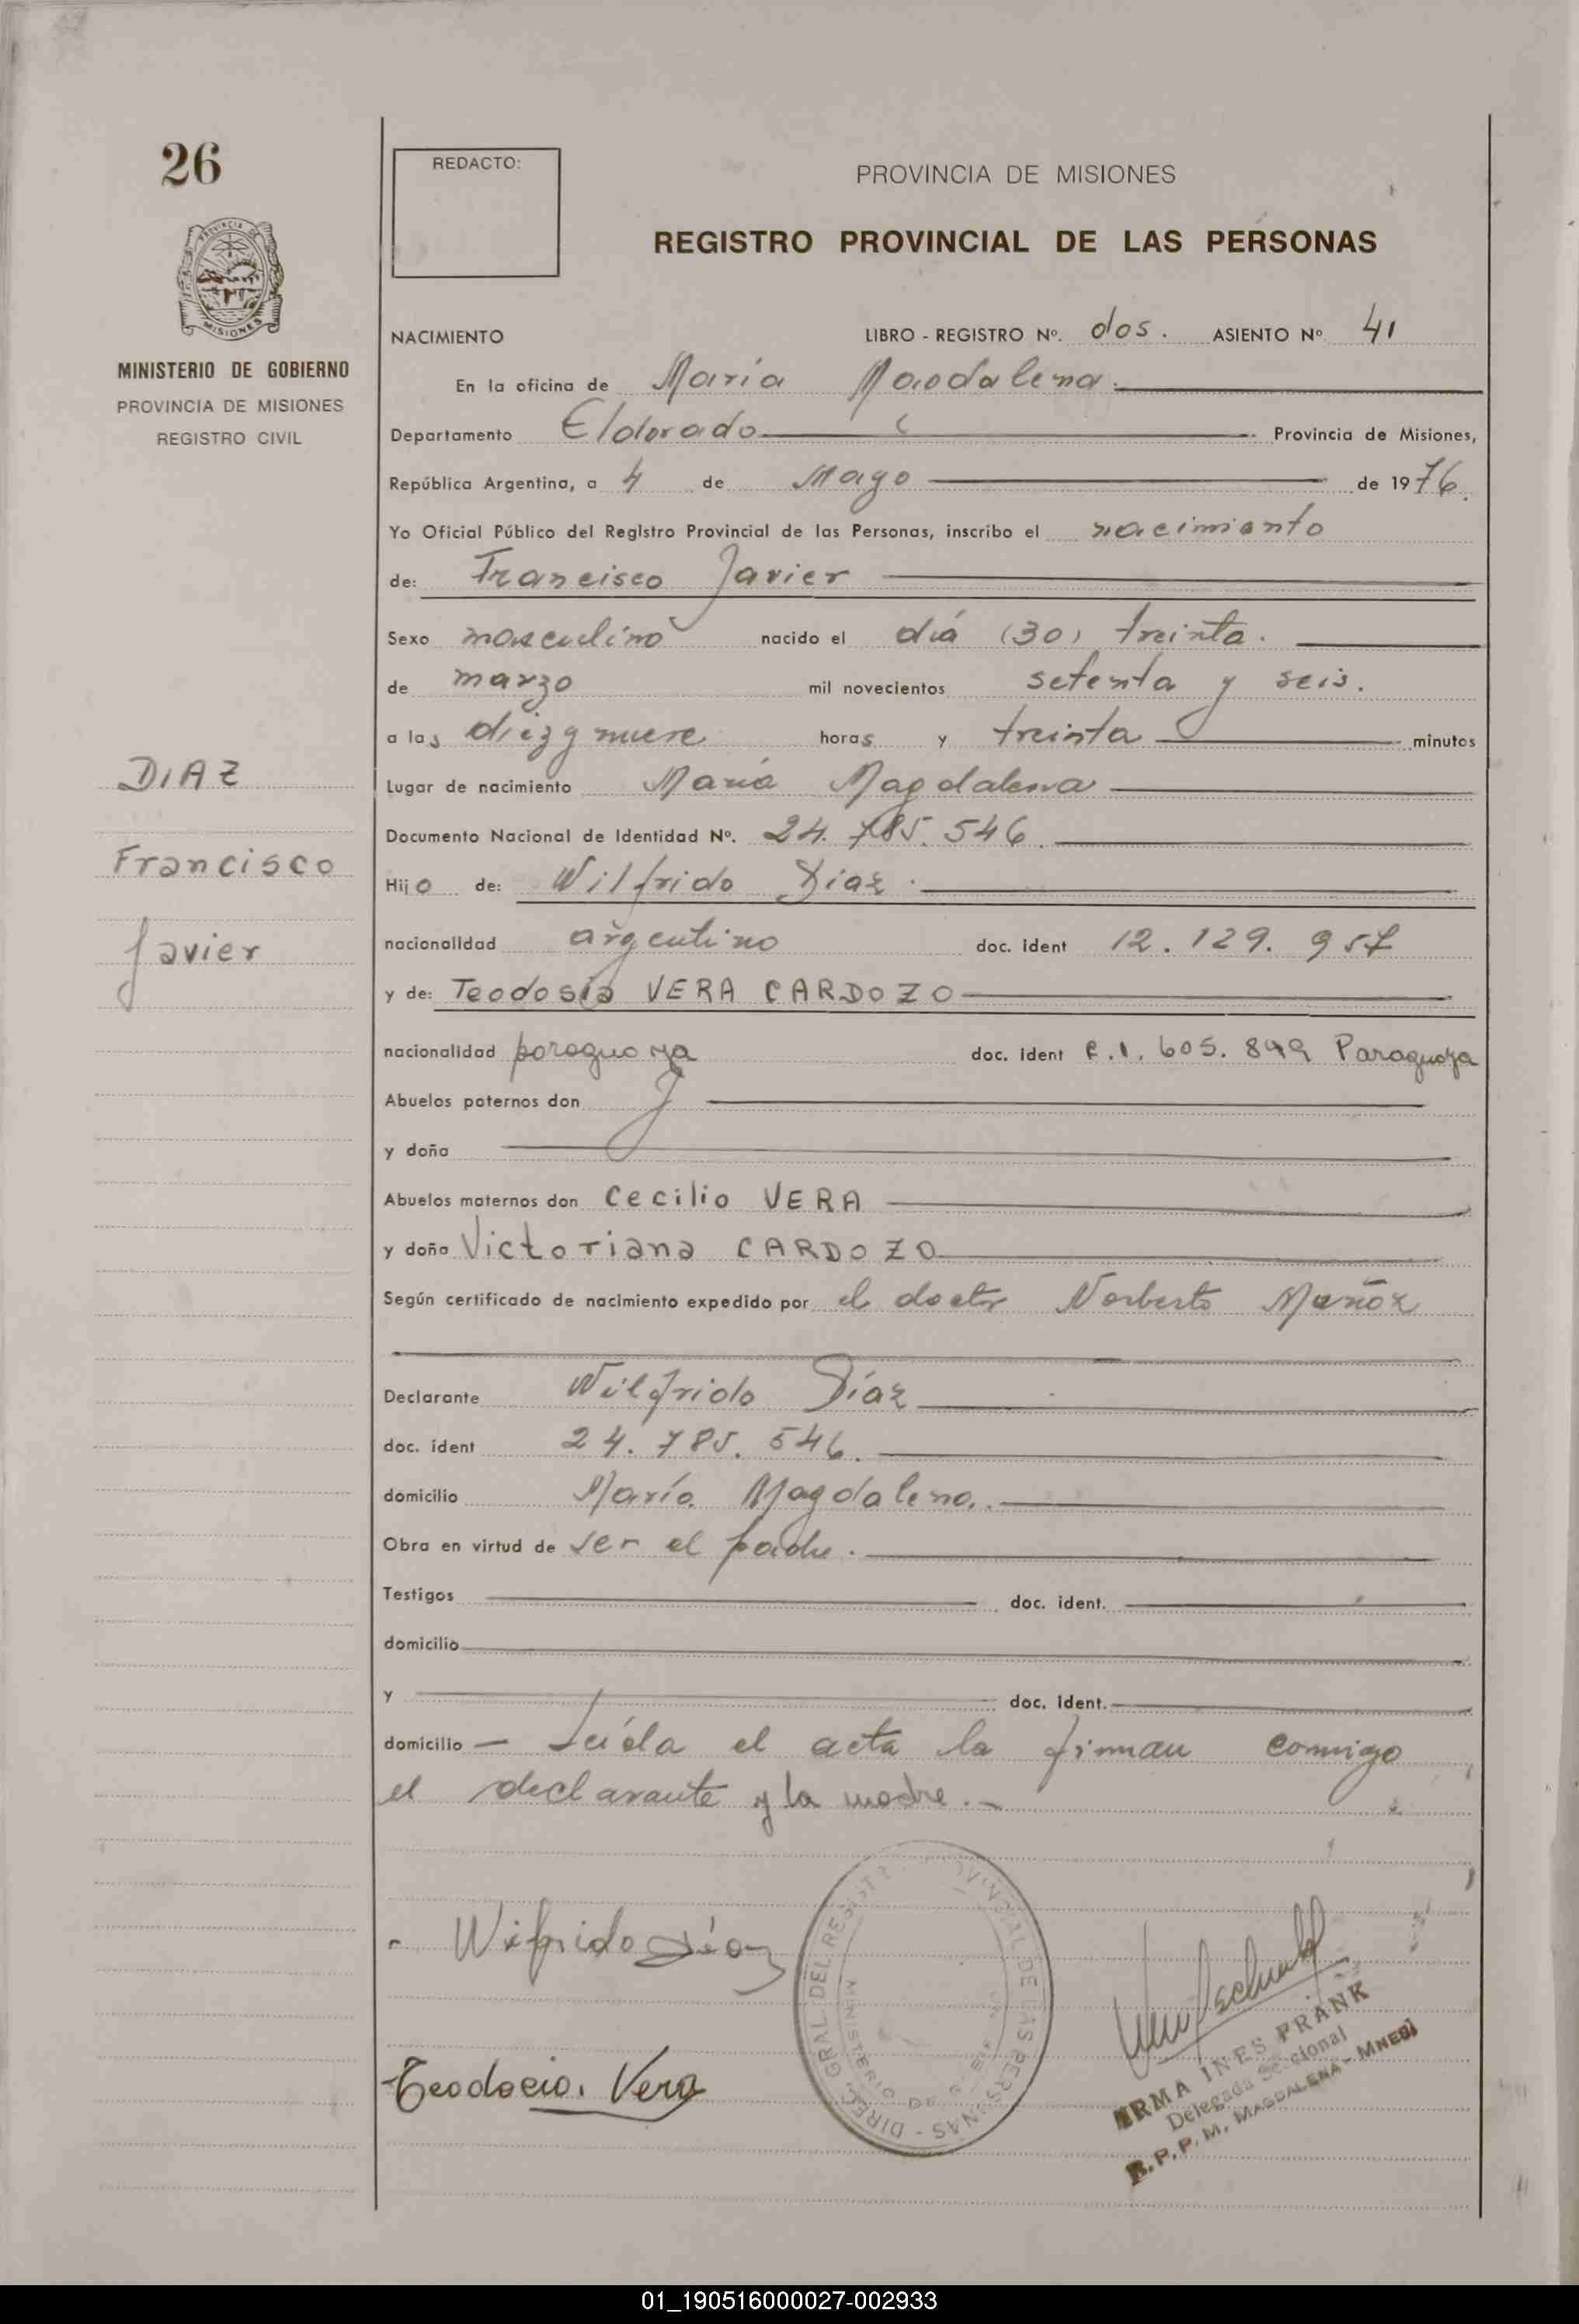 26
REDACTO:
PROVINCIA DE MISIONES
REGISTRO PROVINCIAL DE LAS PERSONAS
MISIONES
MINISTERIO DE GOBIERNO
PROVINCIA DE MISIONES
REGISTRO CIVIL
NACIMIENTO LIBRO - REGISTRO Nº. dos. ASIENTO Nº 41
En la oficina de María Magdalena.
Departamento Eldorado Provincia de Misiones,
República Argentina, a 4 de Mayo de 1976.
Yo Oficial Público del Registro Provincial de las Personas, inscribo el nacimiento
de: Francisco Javier
Sexo masculino nacido el día (30) treinta.
de marzo mil novecientos setenta y seis.
a las diez y nueve horas y treinta minutos
DIAZ
Lugar de nacimiento María Magdalena
Documento Nacional de Identidad Nº. 24.785.546.
Francisco
Hijo de: Wilfrido Díaz.
Javier
nacionalidad argentino doc. ident 12.129.957
y de: Teodosia VERA CARDOZO
nacionalidad paraguaya doc. ident C.I. 605.849 Paraguaya
Abuelos paternos don
y doña
Abuelos maternos don Cecilio VERA
y doña Victoriana CARDOZO
Según certificado de nacimiento expedido por el doctor Norberto Muñóz
Declarante Wilfrido Díaz
doc. ident 24.785.546.
domicilio María Magdalena.
Obra en virtud de ser el padre.
Testigos doc. ident.
domicilio
y doc. ident.
domicilio — Leída el acta la firman conmigo
el declarante y la madre.-
Wilfrido Díaz
Teodocia. Vera
DIREC. GRAL. DEL REGISTR VINCIAL DE LAS PERSONAS
MINISTERIO DE
IRMA INES FRANK
Delegada Seccional
R.P.P. M. MAGDALENA - MNES
01_190516000027-002933